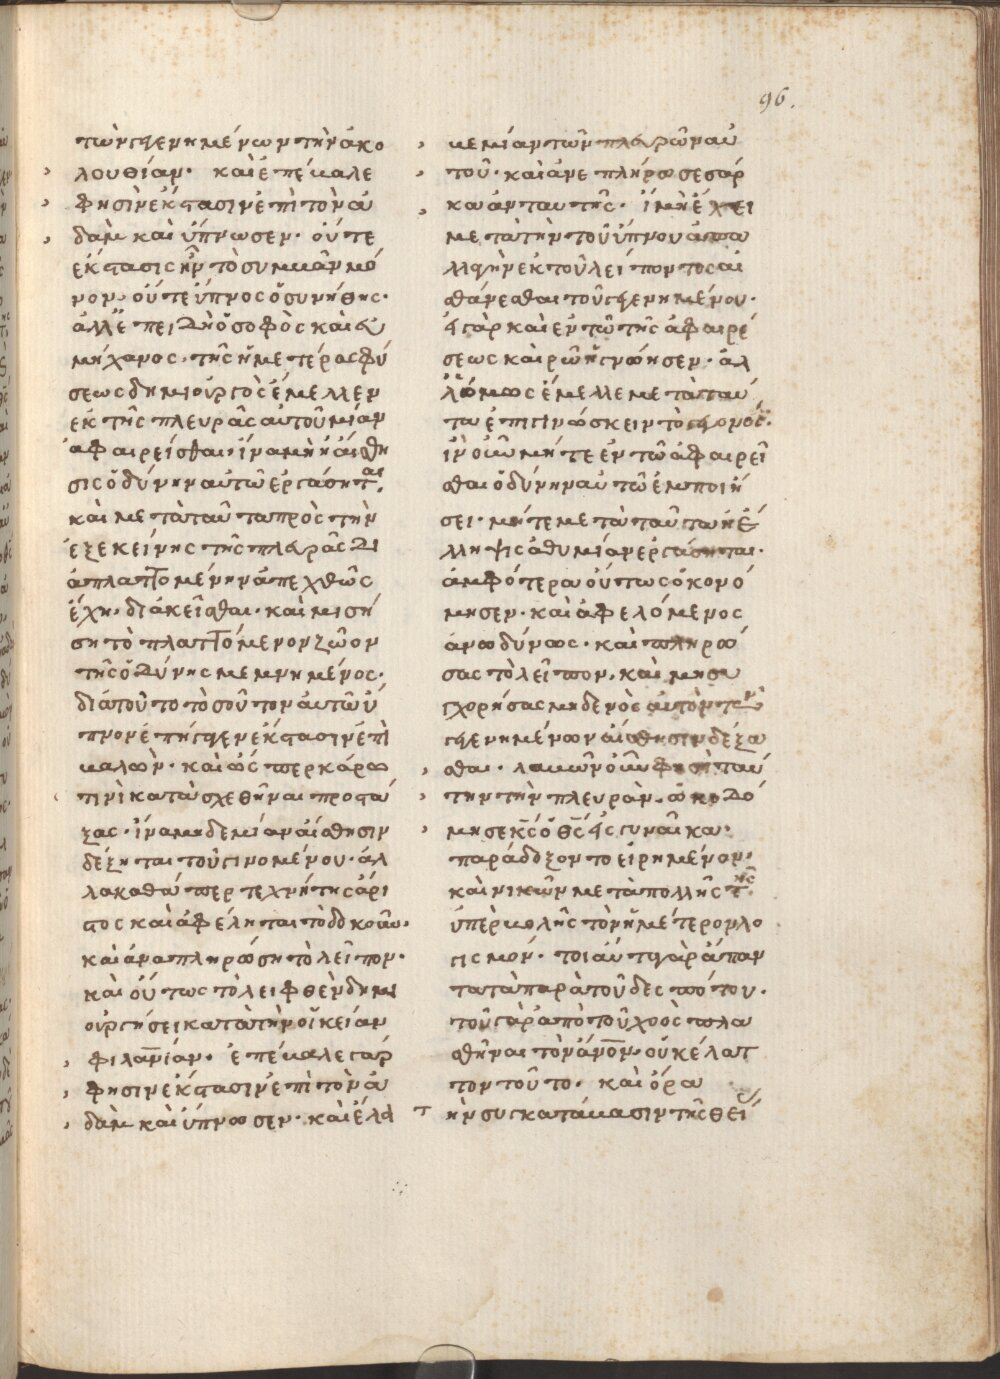 96.
τῶν γεγενημένων τὴν ἀκο
λουθίαν. καὶ ἐπέβαλε
φησὶν ἔκστασιν ἐπὶ τὸν ἀ
δὰμ καὶ ὕπνωσεν. οὔτε
ἔκστασις ἦν τὸ συμβὰν μό
νον, οὔτε ὕπνος ὁ συνήθης.
ἀλλ' ἐπειδὴ ὁ σοφὸς καὶ εὐ
μήχανος. τῆς ἡμετέρας φύ
σεως δημιουργὸς ἔμελλεν
ἐκ τῆς πλευρᾶς αὐτοῦ μίαν
ἀφαιρεῖσθαι. ἵνα μὴ ἡ αἴσθη
σις ὀδύνην αὐτῷ ἐργάσηται.
καὶ μετὰ ταῦτα πρὸς τὴν
ἐξ ἐκείνης τῆς πλευρᾶς δι
απλαττομένην ἀπεχθῶς
ἔχη. διακεῖσθαι. καὶ μισή
ση τὸ πλαττόμενον ζῶον
τῆς ὀδύνης μεμνημένος.
διὰ τοῦτο τοσοῦτον αὐτῶ ὕ
πνον ἐπήγεγεν ἔκστασιν ἐπι
βαλὼν. καὶ ὥσπερ κάρω
τινὶ κατασχεθῆναι προστά
ξας. ἵνα μηδεμίαν αἴσθησιν
δέξηται τοῦ γινομένου. ἀλ
λα καθάπερ τεχνήτης ἄρι
στος καὶ ἀφέληται τὸ δοκοῦν.
καὶ ἀναπληρώση τὸ λεῖπον.
καὶ οὕτως τὸ λειφθὲν δημι
ουργήσει κατὰ τὴν οἰκείαν
φιλανίαν. ἐπέβαλε γάρ
φησιν ἔκστασιν ἐπὶ τὸν ἀ
δὰμ καὶ ὕπνωσεν. καὶ ἔλα
βε μίαν τῶν πλευρῶν αὐ
τοῦ. καὶ ἀνεπλήρωσε σάρ
κα ἀνταυτῆς. ἵνα μὴ ἔχει
μετὰ τὴν τοῦ ὕπνου ἀπα
λλγὴν ἐκ τοῦ λείποντος αἰ
σθάνεσθαι τοῦ γεγενημένου.
εἰ γὰρ καὶ ἐν τῶ τῆς ἀφαιρέ
σεως καιρῶ ἠγνόησεν. ἀλ
λ' ὅμως ἔμελλε μετὰ ταῦ
τα ἐπιγινώσκειν τὸ γεγονός.
ἵν' οὖν μήτε ἐν τῶ ἀφαιρεῖ
σθαι ὀδύνην αὐτῶ ἐμποιή
σει. μήτε μετὰ ταῦτα ἡ ἔ
λληψις ἀθυμίαν ἐργάσηται.
ἀμφότερα οὕτως ὀκονό
μησεν. καὶ ἀφελόμενος
ἀνωδύνως. καὶ πληρώ
σας τὸ λεῖπον. καὶ μὴ συ
γχορήσας μηδενὸς αὐτὸν τῶν
γεγενημένων αἴσθησιν δέξα
σθαι. λαβὼν οὖν φησὶ ταύ
την τὴν πλευρὰν. ὠκοδό
μησε κς ὁ θς εἰς γυναῖκα.
παράδοξον τὸ εἰρημένον.
καὶ νικῶν μετὰ πολλῆς τῆς
ὑπερβολῆς τὸν ἡμέτερον λο
γισμόν. τοιαῦτα γὰρ ἅπαν
τα τὰ παρὰ τοῦ δεσπότου.
τοῦ γὰρ ἀπὸ τοῦ χοὸς πλα
σθῆναι τὸν ἄνον. οὐκ ἔλατ
τον τοῦτο. καὶ ὅρα
τὴν συγκατάβασιν τῆς θεί